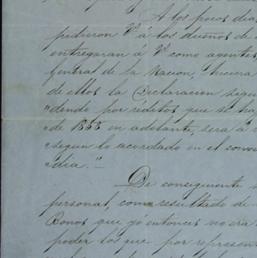 A los pocos dia
pidieron Vª á los dueños de
entregaran á Vª como agentes
Central de la Nacion, hiciera
de ellos la Declaracion segu
"dendo por réditos que se ha
"de 1855 en adelante, será á
"segun lo acordado en el conve
"dia."
De consiguiente
personal, como resultado de
Bonos que yo entonces no era
poder los que por represen